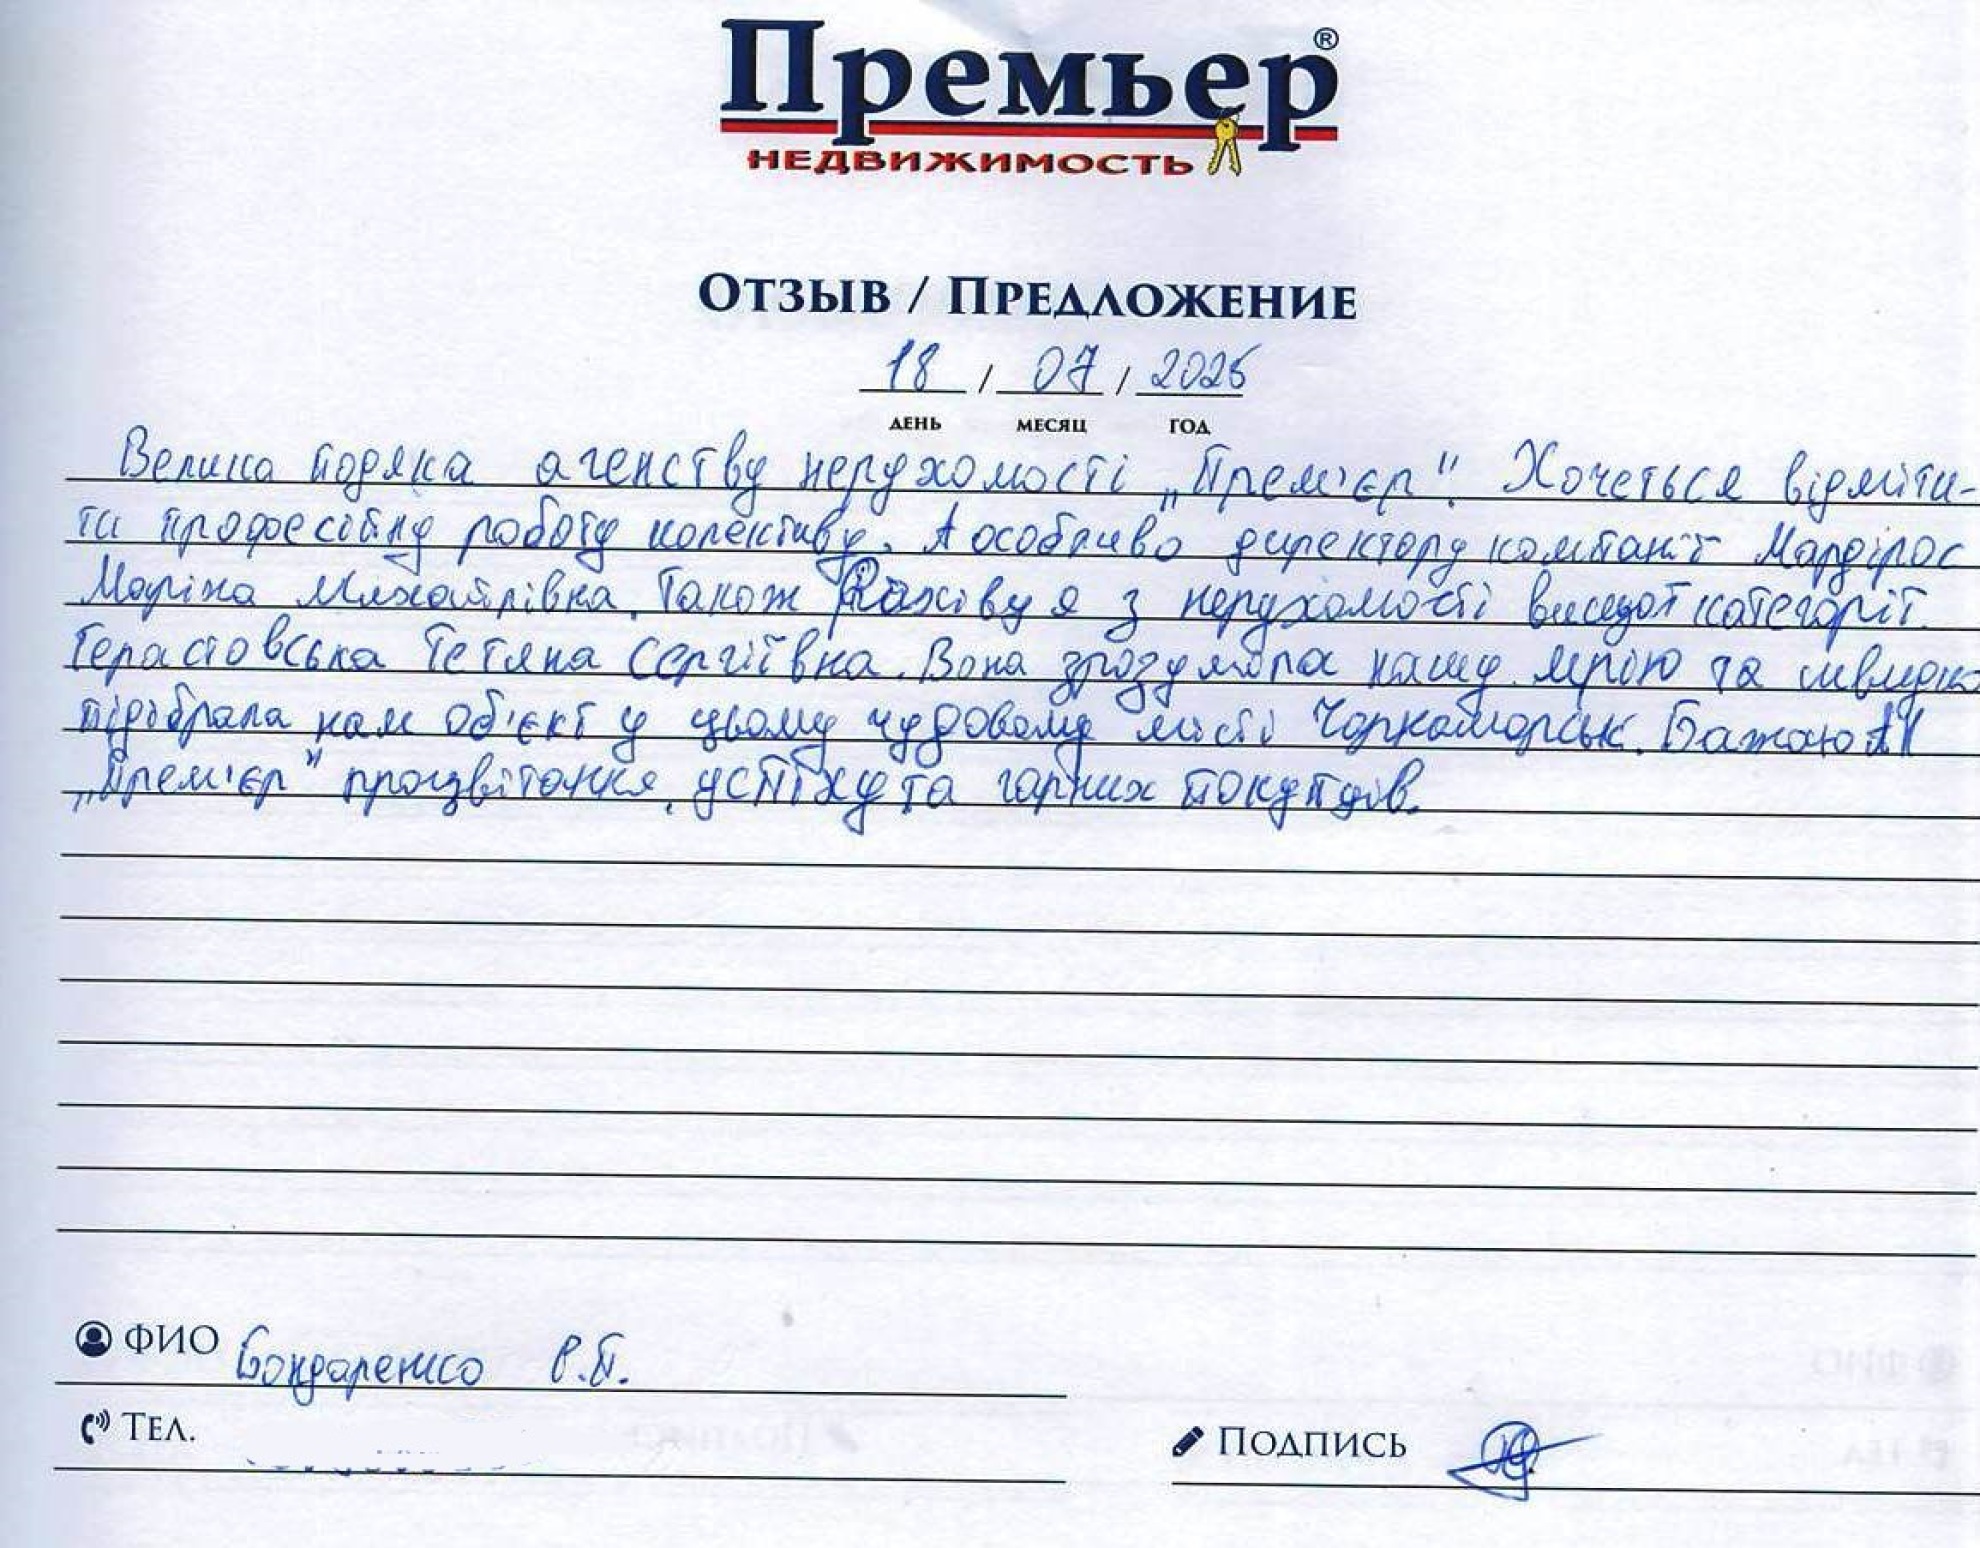 Премьер®
НЕДВИЖИМОСТЬ
ОТЗЫВ / ПРЕДЛОЖЕНИЕ
18 / 07 / 2025
ДЕНЬ МЕСЯЦ ГОД
Велика подяка агенству нерухомості „Прем'єр". Хочеться відміти-
ти професійну роботу колективу. А особливо директору компанії Мардірос
Маріна Михайлівна. Також Фахівця з нерухомості вищої категорії.
Герастовська Тетяна Сергіївна. Вона зрозуміла нашу мрію та швидко
підібрала нам об'єкт у цьому чудовому місті Чорноморськ. Бажаю АН
„Прем'єр" процвітання, успіху та гарних покупців.
ФИО Бондаренко С.П.
ТЕЛ.
ПОДПИСЬ